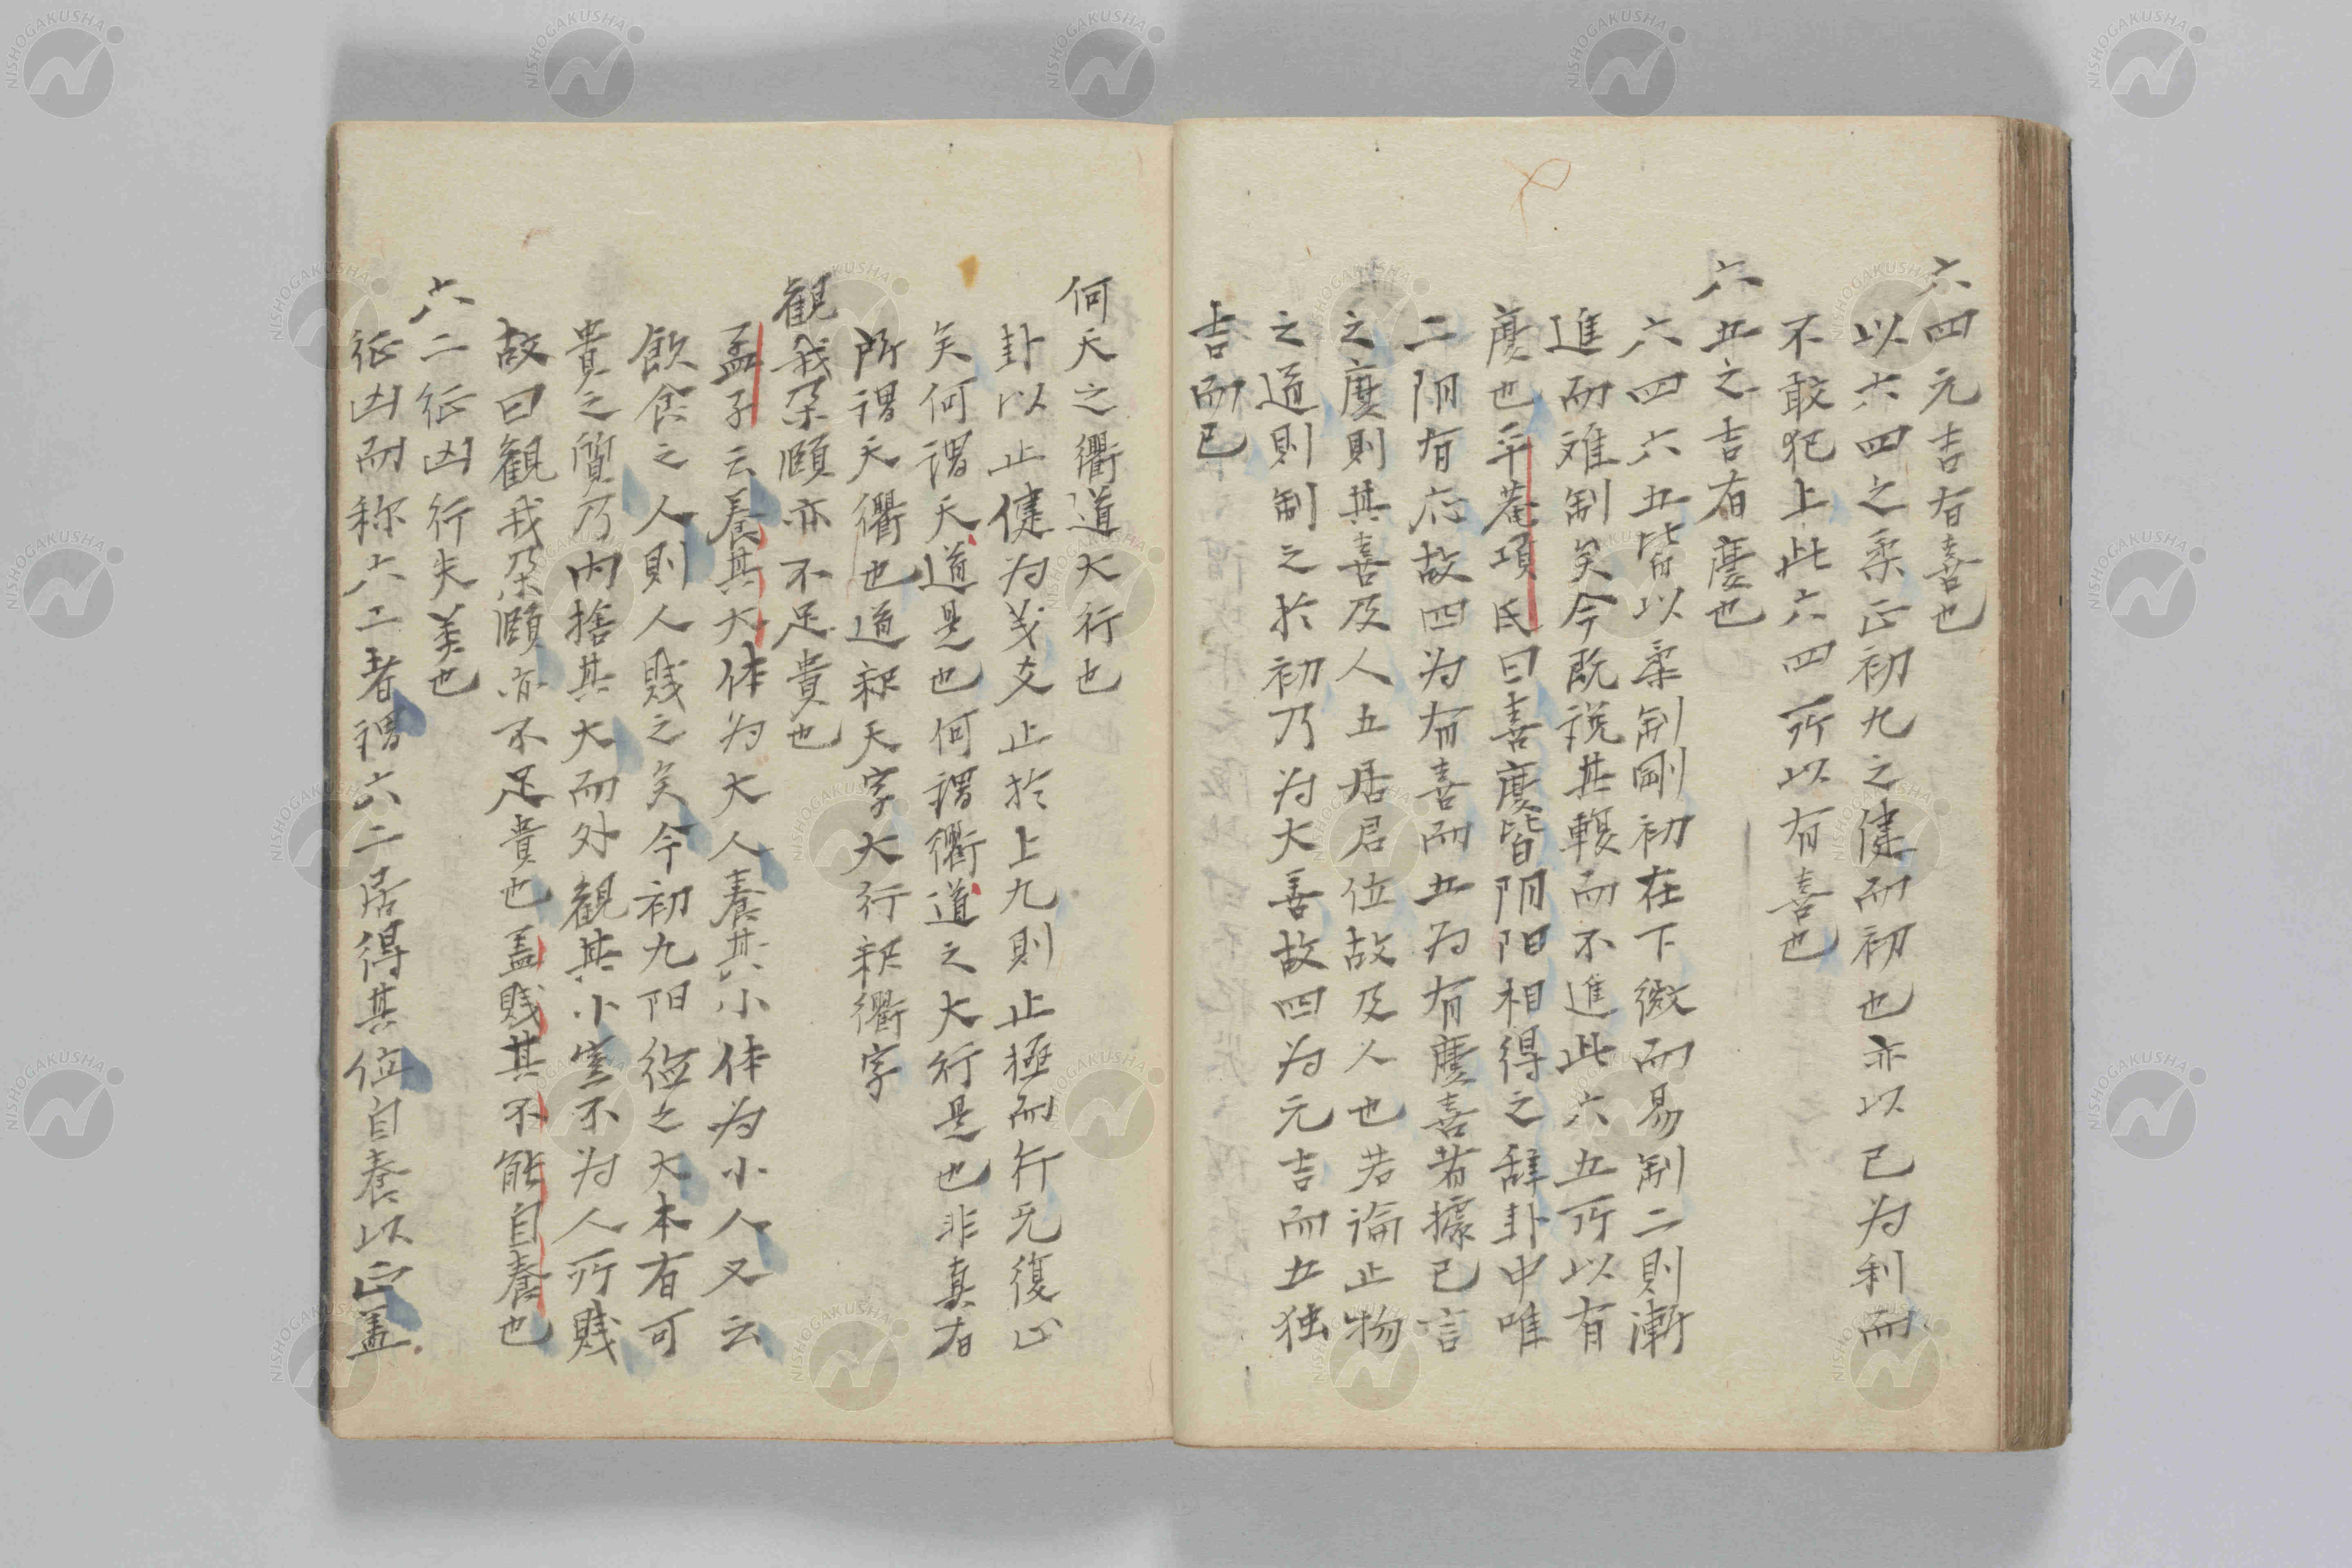 六四元吉有喜也
以六四之柔正初九之健而初也亦以已为利而
不敢犯上此六四所以有喜也
六五之吉有慶也
六四六五皆以柔制剛初在下微而易制二則漸
進而难制矣今既説其輹而不進此六五所以有
慶也平菴項氏曰喜慶皆阴阳相得之辞卦中唯
二阴有应故四为有喜而五为有慶喜者據已言
之慶則其喜及人五居君位故及人也若論止物
之道則制之於初乃为大善故四为元吉而五独
吉而已
何天之衢道大行也
卦以止健为义爻止於上九則止極而行无復止
矣何謂天道是也何謂衢道之大行是也非真有
所謂天衢也道釈天字大行釈衢字
観我朶頤亦不足貴也
孟子云養其大体为大人養其小体为小人又云
飲食之人則人賤之矣今初九阳徳之大本有可
貴之質乃内捨其大而外観其小豈不为人所賤
故曰観我朶頤亦不足貴也盖賤其不能自養也
六二征凶行失类也
征凶而称六二者謂六二居得其位自養以正盖